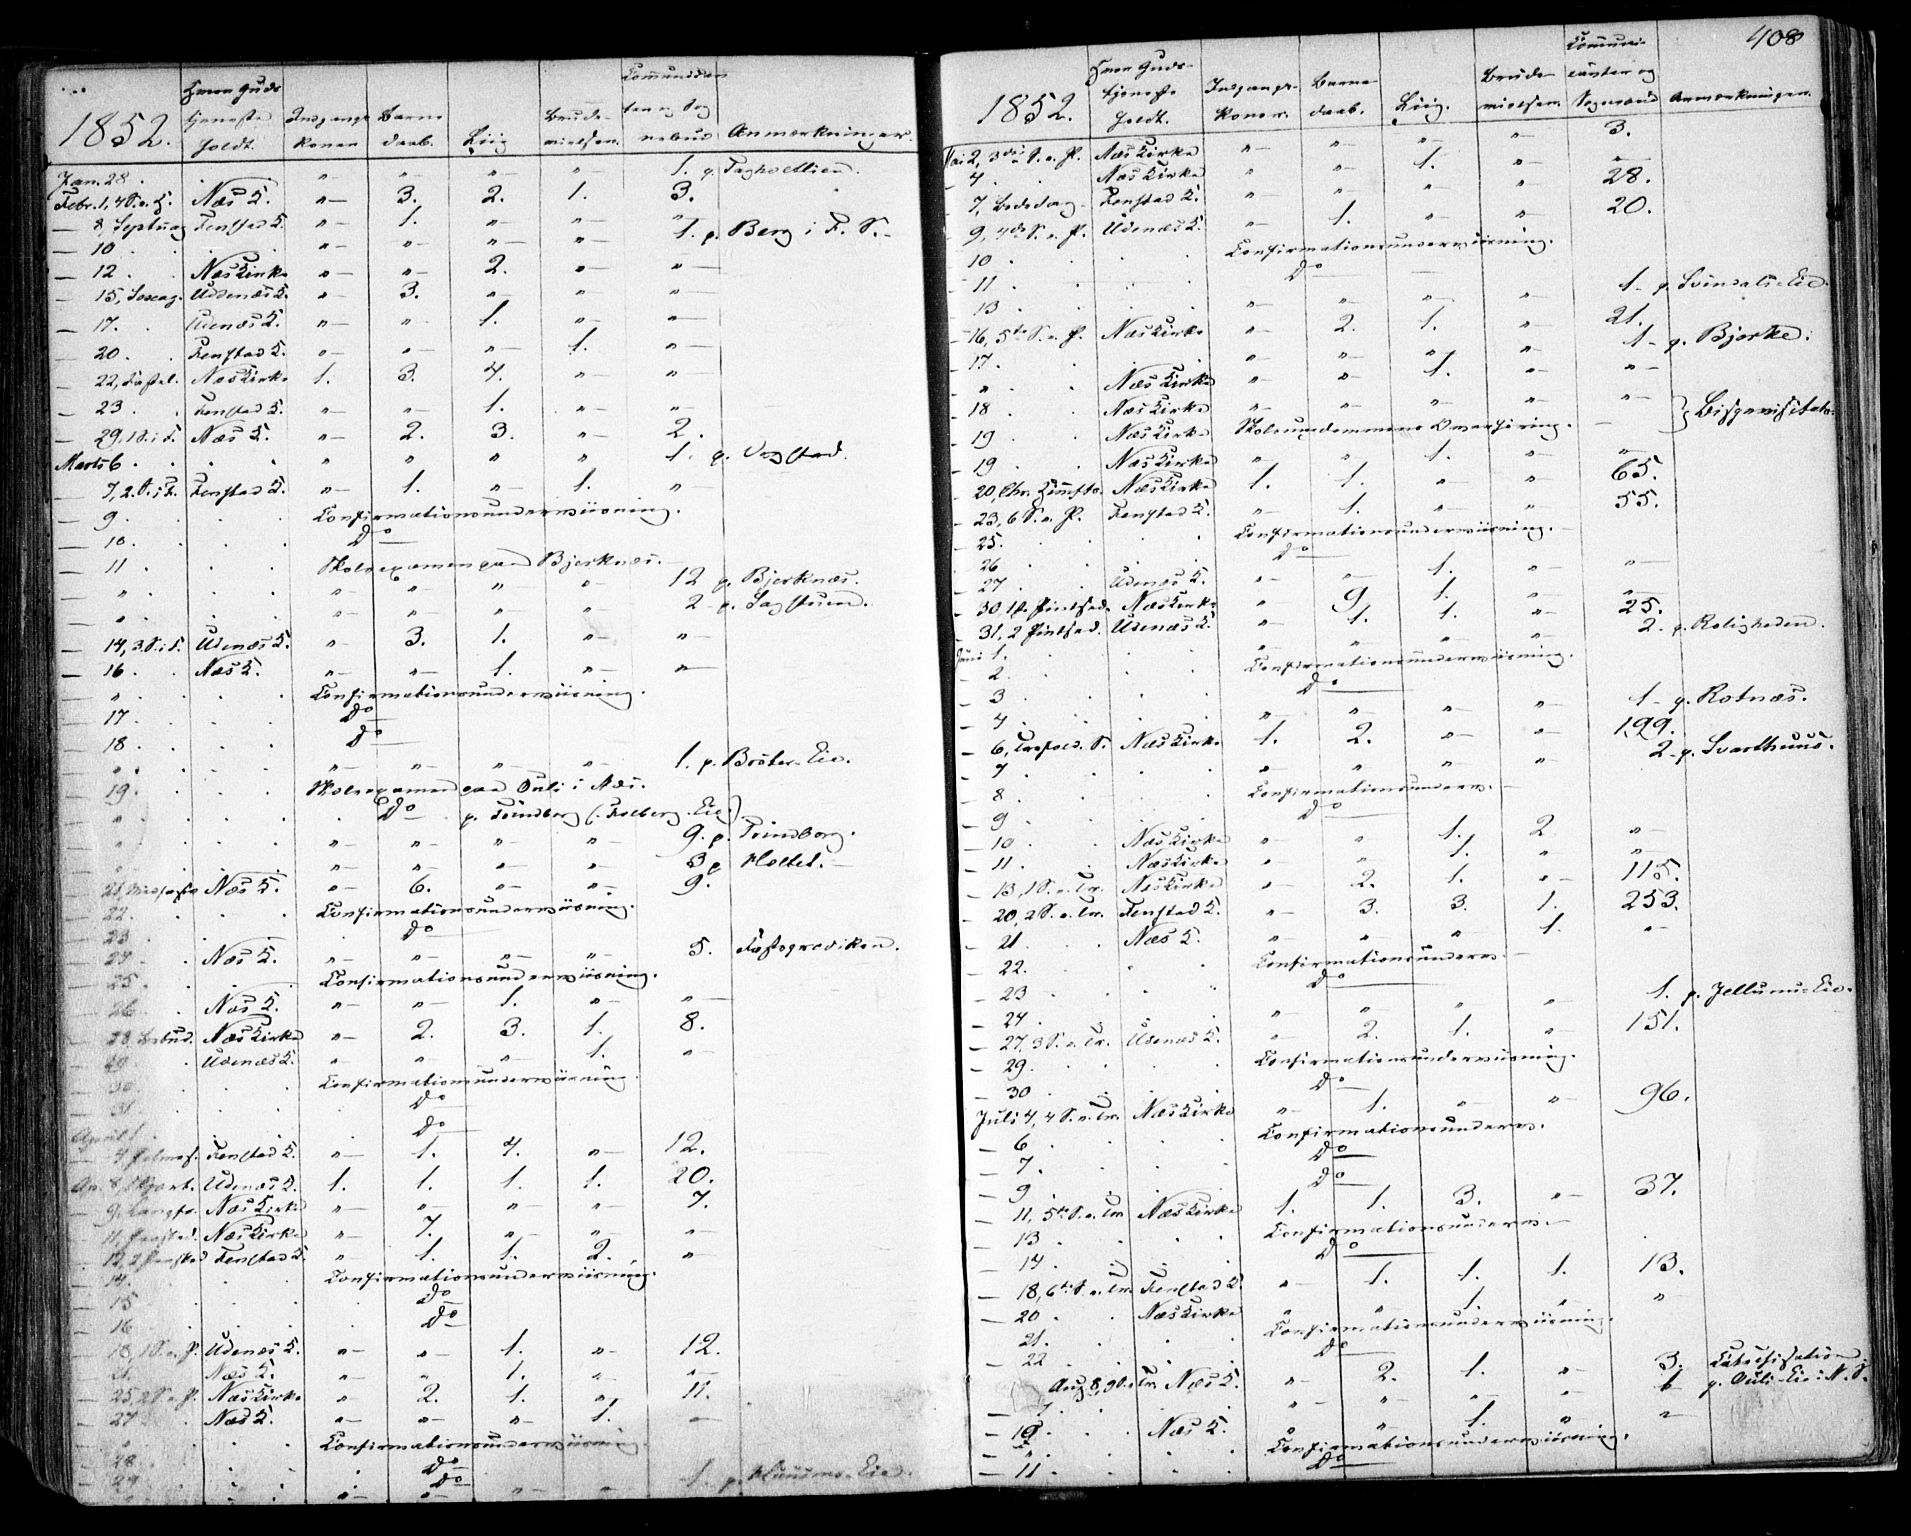 408
1852.
Hvor Guds
tjeneste
holdt.
Indgangs
Koner
Barne
daab.
Liig
Brude
vielser.
Communican
ter og Sog
nebud
Anmærkninger.
Jan. 28 . . „ „ „ „ 1. p.
Febr. 1, 4 S. e. H. Næs K. „ 3. 2. 1. 3.
— 8, Septuag Fenstad K. „ 1. „ „ „
— 10 . . „ „ „ „ 1. p. Berg i F. S.
— 12 . Næs Kirke „ „ 2. „ „
— 15, Sexag. Udenæs K. „ 3. „ „ „
— 17. . Udenæs K. „ „ 1. „ „
— 20 . Fenstad K. „ „ „ 1. „
— 22, Fastel. Næs Kirke 1. 3. 4. „ „
— 23 . Fenstad K. „ „ 1. „ „
— 29, 1 S. i F. Næs K. „ 2. 3. „ 2.
Marts 6 . . „ „ „ „ 1. p. Vogstad.
— 7, 2. S. i F. Fenstad K. „ 1. „ 1. „
— 9 . . . Confirmationsunderviisning.
— 10 . . . Do
— 11 . . . Skoleexamen paa Bjerknæs.
— „ . . „ „ „ „ 12 p. Bjerknæs.
— „ . . „ „ „ „ 2 p. Sagstuen.
— 14, 3. S. i F. Udenæs K. „ 3. 1. „ „
— 16 . Næs K. „ „ 1. „ „
— „ . . . Confirmationsunderviisning.
— 17 . . . Do
— 18 . . . Do
— „ . . „ „ „ „ 1. p. Bröter-Eie.
— 19 . . . Skoleexamen paa Ouli i Næs.
— „ . . . Do p. Tönsberg (. Folberg Eie)
— „ . . „ „ „ „ 9. p.
— „ . . „ „ „ „ 3 p Holtet.
— 21, Midfaste Næs K. „ 6. „ „ 9.
— 22 . . . Confirmationsunderviisning.
— 23 . . . Do
— 24 . Næs K. „ „ „ „ 5. Fasteprædiken.
— 25 . . . Confirmationsunderviisning.
— 26 . Næs K. „ „ 1. „ „
— 28, Bebud. Næs Kirke „ 2. 3. 1. 8.
— 29 . Udenæs K. „ „ „ 1. „
— 30 . . . Confirmationsunderviisning.
— 31 . . . Do
April 1 . . . Do
— 4 Palmes. Fenstad K. „ 1. 4. „ 12.
— 8, Skjært. Udenæs K. 1. 1. 1. 1. 20.
— 9. Langfr. Næs Kirke „ „ „ „ 7.
— 11, Paasked. Næs Kirke „ 7. „ „ „
— 12, 2 Paasked Fenstad K. „ 1. 1. 2. „
— 14 . . . Confirmationsunderviisning.
— 15 . . . Do
— 16 . . . Do
— 18, 1 S. e. P. Udenæs K. „ „ 1. „ 12.
— 21. Næs K. „ „ 1. „ „
— 25, 2 S. e. P. Næs Kirke „ 2. 1. „ 11.
— 27 . Næs K. „ „ „ 1. „
— „ . . . Confirmationsunderviisning.
— 28 . . . Do
— 29 . . . Do
„ „ „ „ 1. p. Huusmo-Eie.
1852.
Hvor Guds-
tjeneste
holdt.
Indgangs-
Koner.
Barne
daab.
Liig.
Brude
vielser.
Communi-
canter og
Sognebud
Anmærkninger.
Mai 2, 3die S. e. P. Næs Kirke „ „ „ „ 3.
— 4 . . Næs Kirke „ „ 1. „ „
— 7, Bededag Fenstad K. „ „ „ „ 28.
— 9, 4de S. e. P. Udenæs K. „ 1. „ „ 20.
— 10 . . . Confirmationsunderviisning.
— 11 . . . Do
— 13 . . „ „ „ „ 1 p. Svindals-Eie.
— 16, 5te S. e. P. Næs Kirke „ 2. 1. „ 21.
— 17. . . „ „ „ „ 1 p. Bjerke.
— „ . . Næs Kirke „ „ 1. „ „
— 18 . . Næs Kirke „ „ „ „ „ } Bispevisitats.
— 19 . . Næs Kirke Skoleungdommens Overhöring.
— 19 . . Næs Kirke „ „ 1. „ „
— 20, Chr. Himmelf. Næs Kirke 1. 1. „ „ 65.
— 23, 6 S. e. P. Fenstad K. „ 1. „ „ 55.
— 25. . . . Confirmationsunderviisning.
— 26 . . . Do
— 27 . . Udenæs K. „ „ 1. „ „
— 30 1ste Pintsed. Næs Kirke „ 9 1. „ „
— 31, 2 Pintsed. Udenæs K. „ 1. 1. „ 25.
Juni 1. . . „ „ „ „ 2. p. Roligheden.
— 2 . . . Confirmationsunderviisning.
— 3 . . . Do
— 4 . . „ „ „ „ 1 p. Rotnæs.
— 6, Trefold. S. Næs Kirke 1. 2. „ „ 199.
— 7 . . „ „ „ „ 2 p. Svarthuus.
— 8 . . . Confirmationsunderv.
— 9 . . . Do
— 10 . . Næs Kirke „ „ 1. 2. „
— 11 . . Næs Kirke „ „ 1. „ „
— 13, 1 S. e. Tr. Næs Kirke „ 2. 1. „ 115.
— 20, 2 S. e. Tr. Fenstad K. „ 3. 3. 1. 253.
— 21 . . Næs K. „ „ „ 1. „
— 22. . . . Confirmationsunderv.
— 23 . . . Do
— 24 . . „ „ „ „ 1. p. Jellumu-Eie.
— 27, 3 S. e. Tr. Udenæs K. „ 2. 1. „ 151.
— 29. . . . Confirmationsunderviisning.
— 30 . . . Do
Juli 4, 4 S. e. Tr. Næs Kirke „ 1. „ „ 96.
— 6 . . . Confirmationsunderv.
— 7. . . . Do
— 9 . . . Do
— 11, 5te S. e. Tr. Næs Kirke 1. 1. 3. „ 37.
— 13 . . . Confirmationsunderv.
— 14 . . . Do
— 18, 6te S. e. Tr. Fenstad K. „ 1. 1. 1. 13.
— 20 . . Næs Kirke „ „ 1. „ „
— 21. . . . Confirmationsunderviisning.
— 22 . . . Do
Aug 8, 9 S. e. Tr. Næs K. „ 2. 1. „ 3. Catechisation.
— „ . . „ „ „ „ 1 p. Ouli-Eie i N. S.
— 10 . . Næs K. „ „ 1. „ „
— „ . . . Confirmationsunderviisning.
— 11 . . . Do